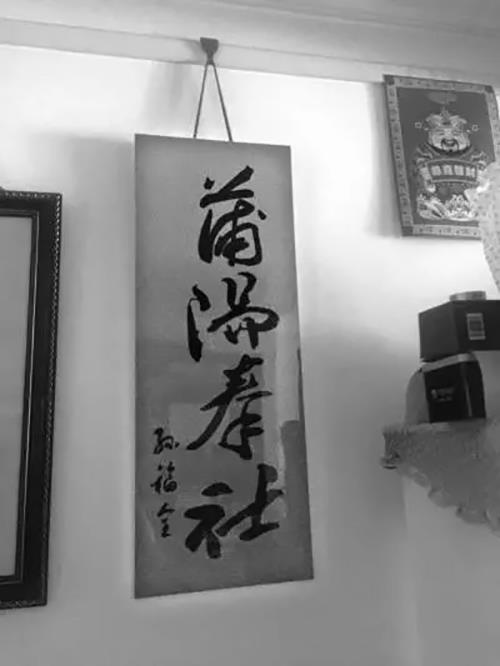 蒲陽拳社
孫福全